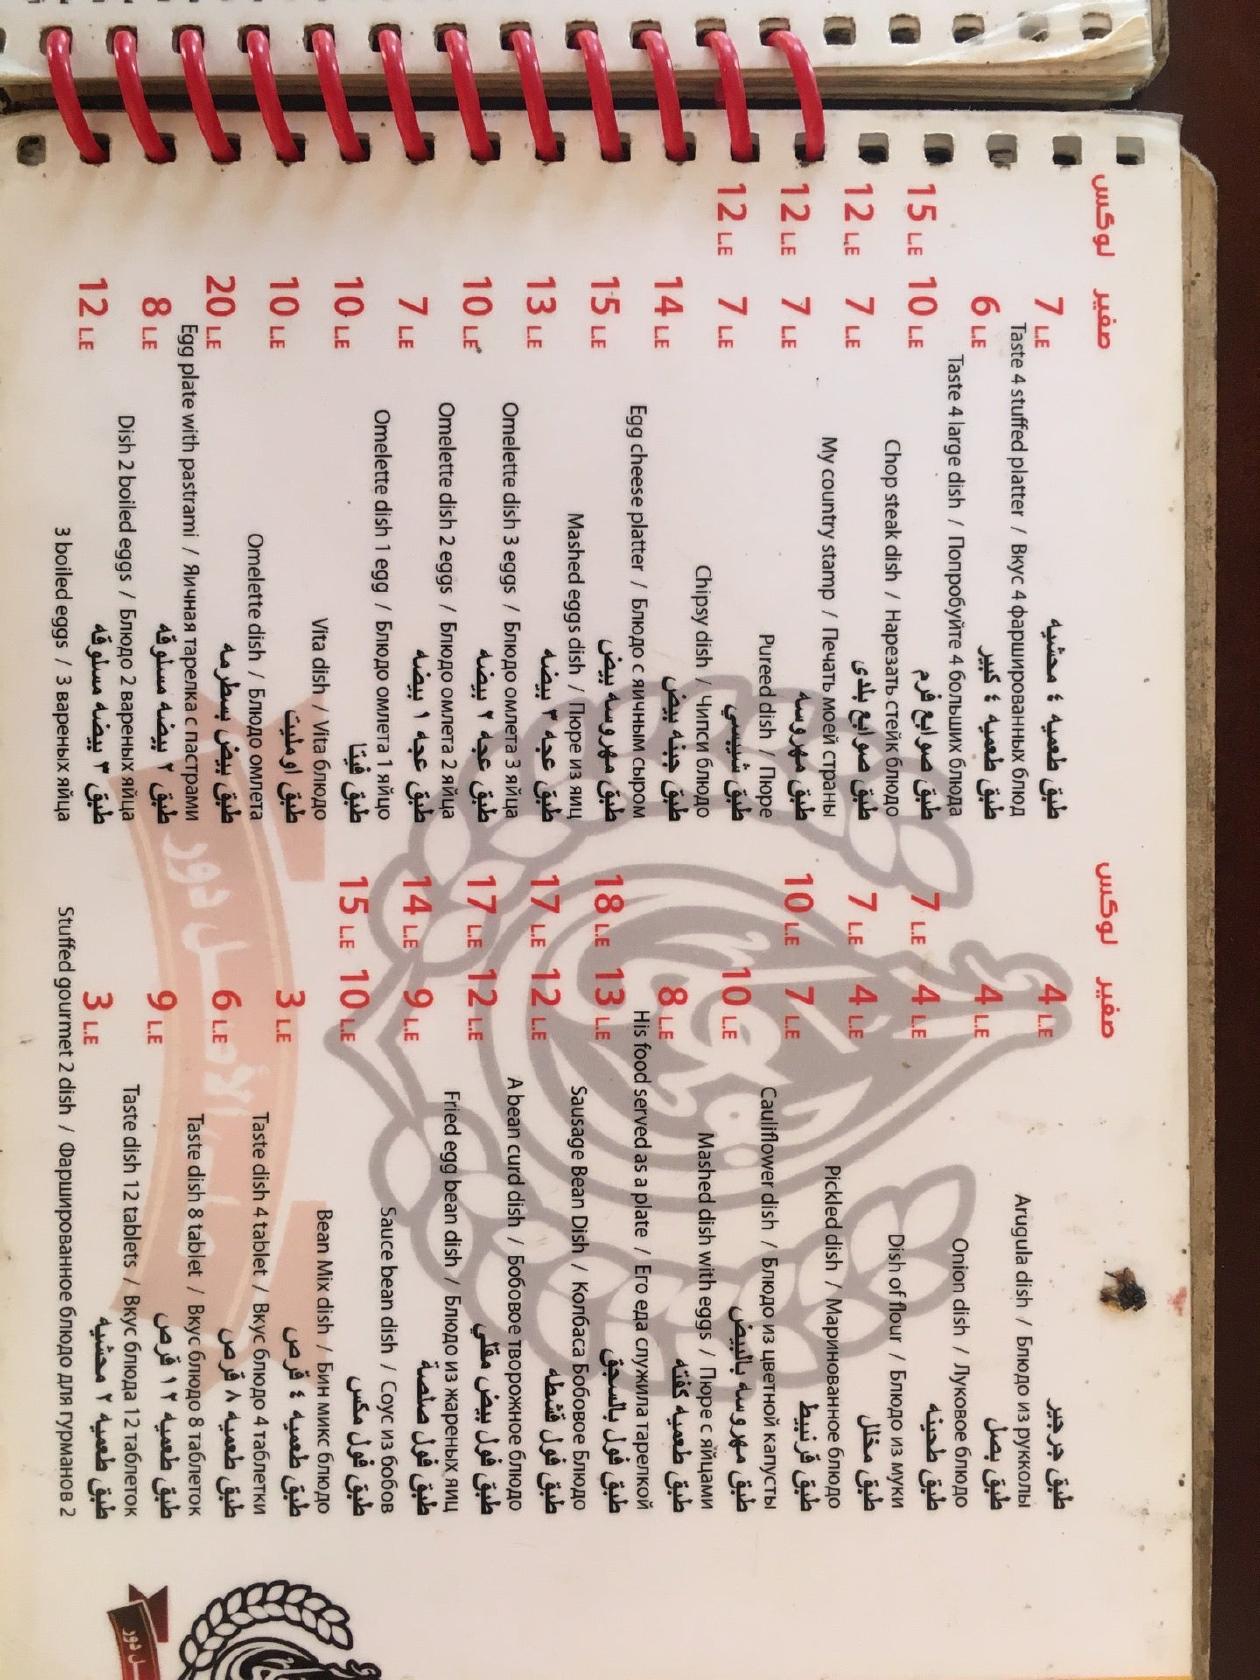 صغير لوكس
طبق جرجير 4 L.E
Arugula dish / Блюдо из рукколы
طبق بصل 4 L.E
Onion dish / Луковое блюдо
طبق طحينه 4 L.E 7 L.E
Dish of flour / Блюдо из муки
طبق مخلل 4 L.E 7 L.E
Pickled dish / Маринованное блюдо
طبق قرنبيط 7 L.E 10 L.E
Cauliflower dish / Блюдо из цветной капусты
طبق مهروسه بالبيض 10 L.E
Mashed dish with eggs / Пюре с яйцами
طبق طعميه كفته 8 L.E
His food served as a plate / Его еда служила тарелкой
طبق فول بالسجق 13 L.E 18 L.E
Sausage Bean Dish / Колбаса Бобовое Блюдо
طبق فول قشطه 12 L.E 17 L.E
A bean curd dish / Бобовое творожное блюдо
طبق فول بيض مقلي 12 L.E 17 L.E
Fried egg bean dish / Блюдо из жареных яиц
طبق فول صلصة 9 L.E 14 L.E
Sauce bean dish / Соус из бобов
طبق فول مكس 10 L.E 15 L.E
Bean Mix dish / Бин микс блюдо
طبق طعميه ٤ قرص 3 L.E
Taste dish 4 tablet / Вкус блюдо 4 таблетки
طبق طعميه ٨ قرص 6 L.E
Taste dish 8 tablet / Вкус блюдо 8 таблеток
طبق طعميه ١٢ قرص 9 L.E
Taste dish 12 tablets / Вкус блюда 12 таблеток
طبق طعميه ٢ محشيه 3 L.E
Stuffed gourmet 2 dish / Фаршированное блюдо для гурманов 2
صغير لوكس
طبق طعميه ٤ محشيه 7 L.E
Taste 4 stuffed platter / Вкус 4 фаршированных блюд
طبق طعميه ٤ كبير 6 L.E
Taste 4 large dish / Попробуйте 4 больших блюда
طبق صوابع فرم 10 L.E 15 L.E
Chop steak dish / Нарезать стейк блюдо
طبق صوابع بلدى 7 L.E 12 L.E
My country stamp / Печать моей страны
طبق مهروسه 7 L.E 12 L.E
Pureed dish / Пюре
طبق شيبسي 7 L.E 12 L.E
Chipsy dish / Чипси блюдо
طبق جبنه بيض 14 L.E
Egg cheese platter / Блюдо с яичным сыром
طبق مهروسه بيض 15 L.E
Mashed eggs dish / Пюре из яиц
طبق عجه ٣ بيضه 13 L.E
Omelette dish 3 eggs / Блюдо омлета 3 яйца
طبق عجه ٢ بيضه 10 L.E
Omelette dish 2 eggs / Блюдо омлета 2 яйца
طبق عجه ١ بيضه 7 L.E
Omelette dish 1 egg / Блюдо омлета 1 яйцо
طبق فيتا 10 L.E
Vita dish / Vita блюдо
طبق اومليت 10 L.E
Omelette dish / Блюдо омлета
طبق بيض بسطرمه 20 L.E
Egg plate with pastrami / Яичная тарелка с пастрами
طبق ٢ بيضه مسلوقه 8 L.E
Dish 2 boiled eggs / Блюдо 2 вареных яйца
طبق ٣ بيضه مسلوقه 12 L.E
3 boiled eggs / 3 вареных яйца